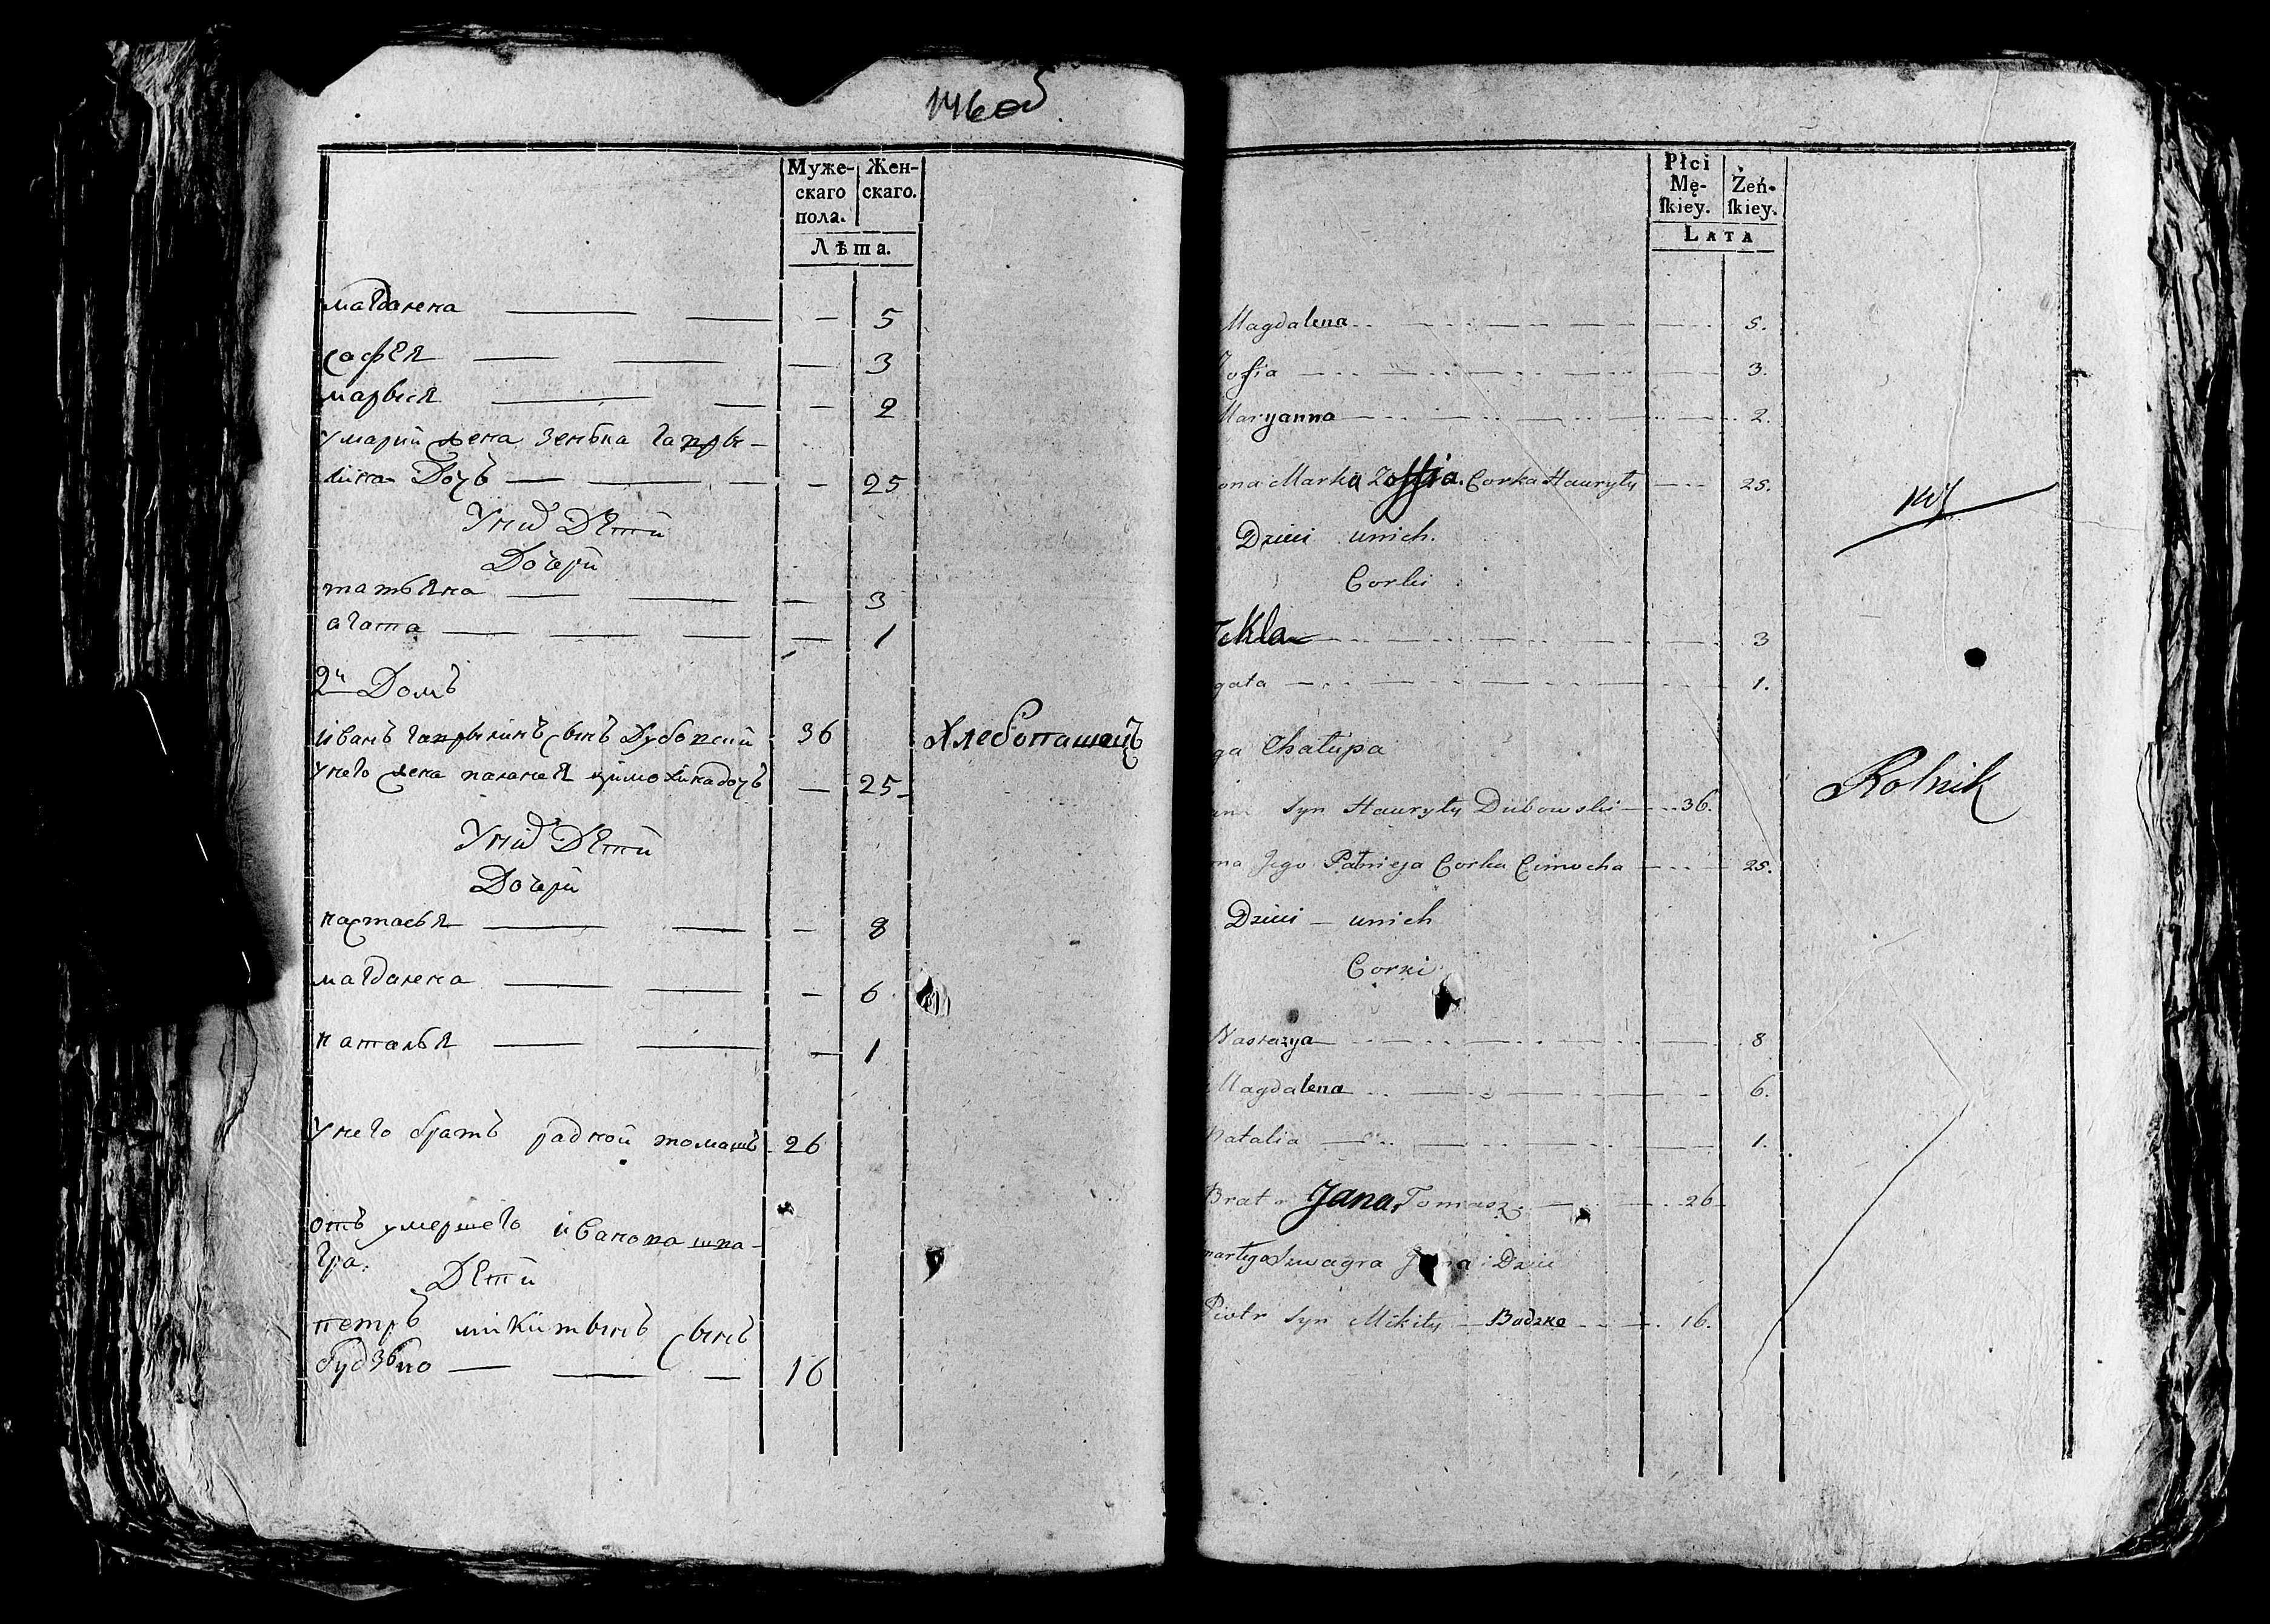 146 об
Муже-
скаго
пола.
Жен-
скаго.
Лѣта.
магдалена — — — 5
софея — — — 3
марыся — — — 2
умарки жена зенька гапры-
лика дочъ — — — 25
Уних Дети
Дочери
татьяна — — — 3
агата — — — 1
2й Домъ
иванъ гаврыликъ сынъ Дубовский 36 Хлебопашецъ
унего жена паланея цимохика дочъ — 25
Уних Дети
Дочери
настасья — — — 8
магдалена — — — 6
наталья — — — 1
унего братъ радной томашъ 26
отъ умершего ивановаго шва-
гра.
Дети
петръ микитынъ сынъ
будзько — — — 16
Płci
Mę-
ſkiey.
Żeń-
ſkiey.
LATA
Magdalena — — — 5.
Zofia — — — 3.
Maryanna — — — 2.
ona Marka Zoffia. Corka Hauryły — 25.
147
Dzieci unich.
Corki
Tekla — — — 3
gata — — — 1.
ga Chałupa
an syn Hauryły Dubowski — 36. Rolnik
na Jego Pałnieja Corka Cimocha — 25.
Dzieci — unich
Corki
Nastazya — — — 8
Magdalena — — — 6.
Natalia — — — 1.
Brat Jana, Tomasz. — 26
martego Szwagra Jana Dzieci
Piotr syn Mikity Budzko — 16.